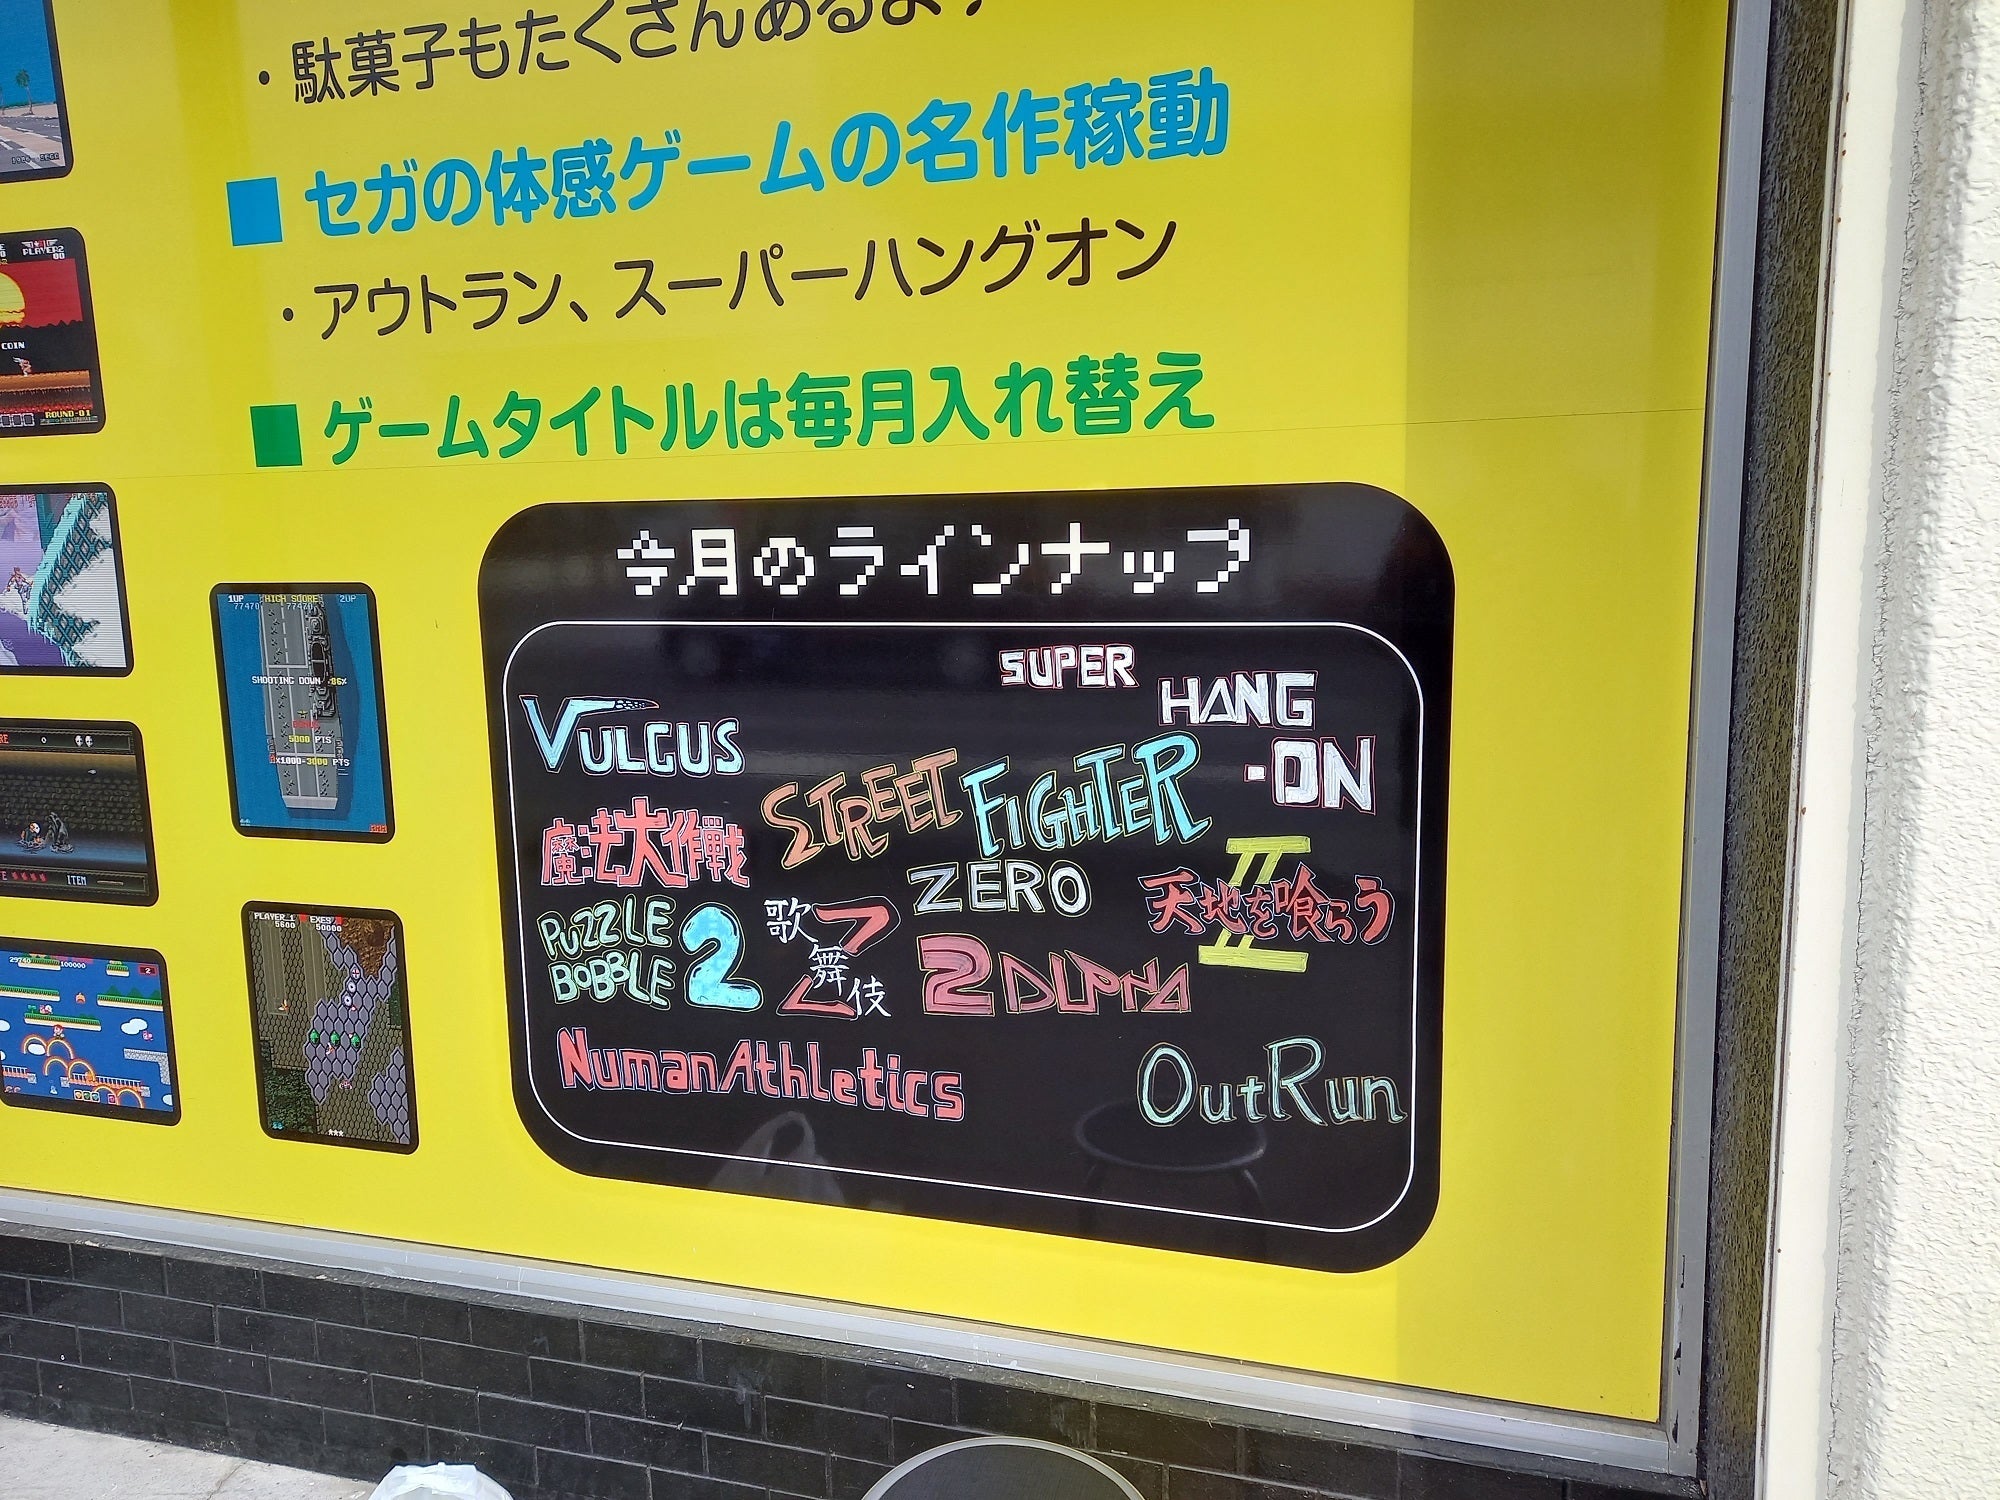 ・駄菓子もたくさんあるよ
■ セガの体感ゲームの名作稼動
・アウトラン、スーパーハングオン
■ ゲームタイトルは毎月入れ替え
今月のラインナップ
SUPER
HANG
-ON
VULGUS
STREET FIGHTER
ZERO
2 ALPHA
魔法大作戦
天地を喰らう
II
PUZZLE
BOBBLE 2
歌舞伎
Z
NumanAthletics
OutRun
1986 SEGA
PLAYER2
00
COIN
ROUND-01
1UP HIGH SCORE 2UP
77470 77470
SHOOTING DOWN 86%
5000 PTS
×1000=3000 PTS
ITEM
PLAYER 1 EXES
5600 50000
29740 100000
2